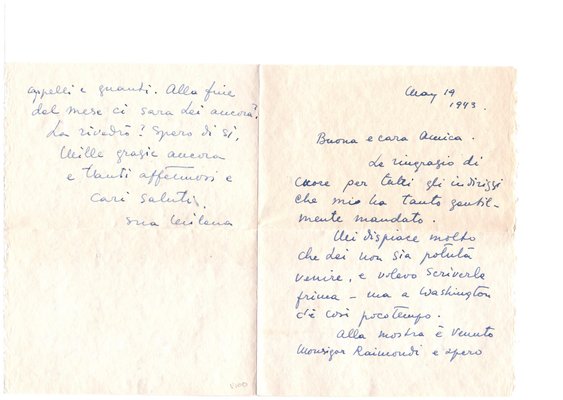 May 19
1943.
Buona e cara Amica.
La ringrazio di
cuore per tutti gli indirizzi
che mi ha tanto gentil-
mente mandato.
Mi dispiace molto
che Lei non sia potuta
venire, e volevo scriverla
prima - ma a Washington
c'è così poco tempo.
Alla mostra è venuto
Monsigor Raimondi e spero
appelli e guanti. Alla fine
del mese ci sara Lei ancora?
La rivedrò? Spero di si.
Mille grazie ancora
e tanti affettuosi e
cari saluti.
sua Milena